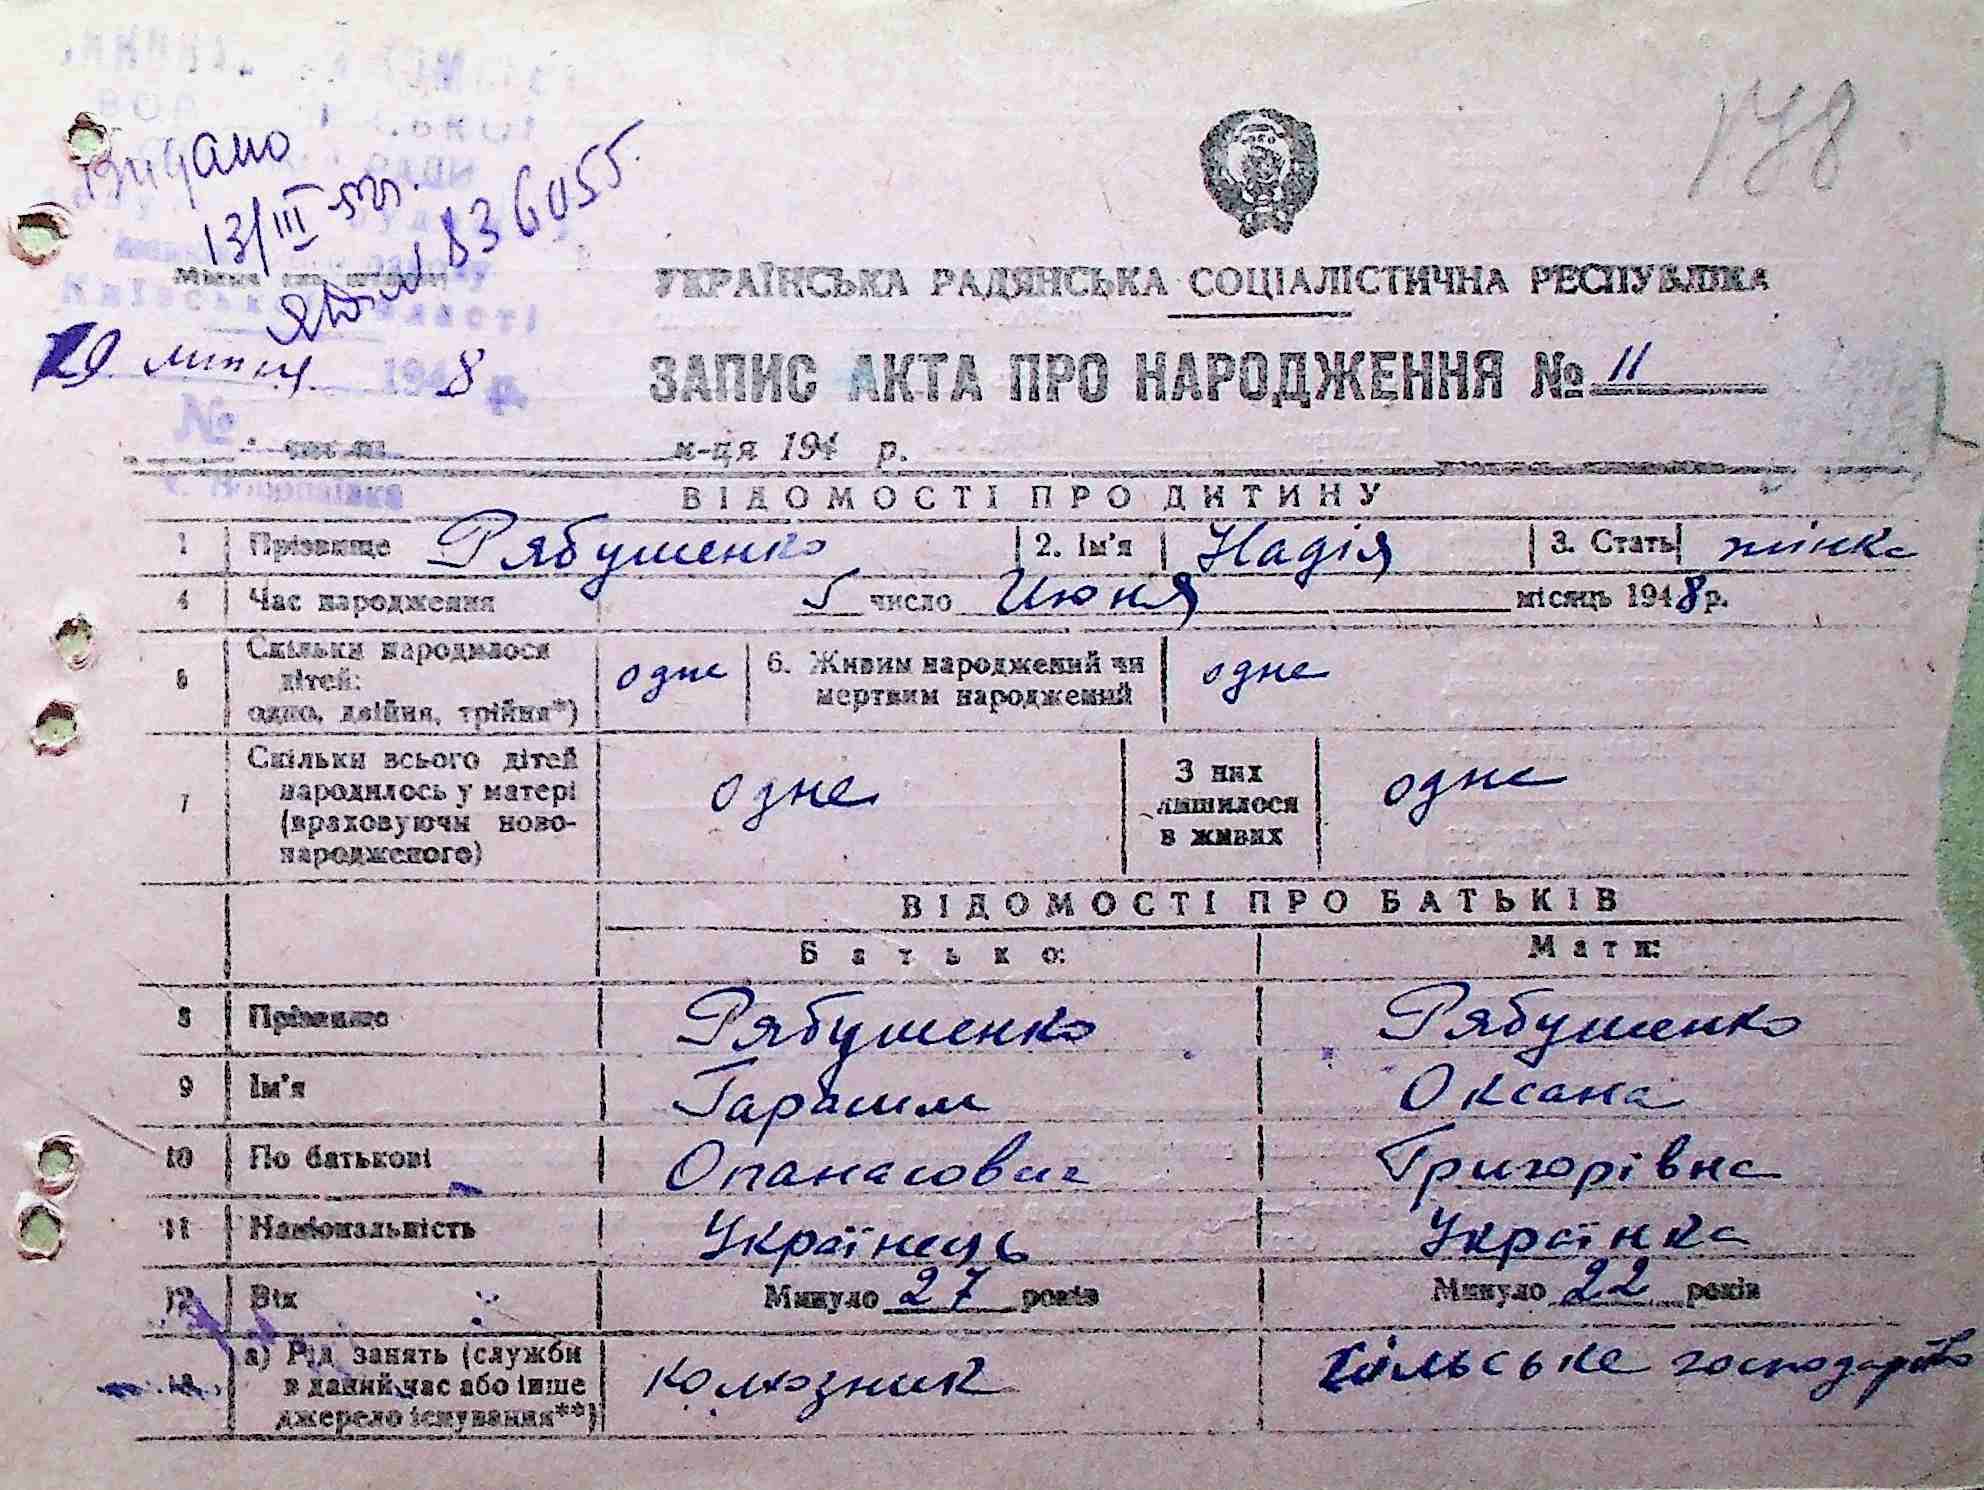 178
Видано
13/III
836055
Київської області
УКРАЇНСЬКА РАДЯНСЬКА СОЦІАЛІСТИЧНА РЕСПУБЛІКА
липня 1948 р.
ЗАПИС АКТА ПРО НАРОДЖЕННЯ № 11
№
м-ця 194 р.
ВІДОМОСТІ ПРО ДИТИНУ
1 Прізвище Рябушенко 2. Ім'я Надія 3. Стать жінка
4 Час народження 5 число Июня місяць 1948 р.
5 Скільки народилося дітей: одно, двійня, трійня*) одне 6. Живим народжений чи мертвим народжений одне
7 Скільки всього дітей народилось у матері (враховуючи новонародженого) одне З них лишилося в живих одне
ВІДОМОСТІ ПРО БАТЬКІВ
Батько: Мати:
8 Прізвище Рябушенко Рябушенко
9 Ім'я Гарасим Оксана
10 По батькові Опанасович Григорівна
11 Національність Українець Українка
12 Вік Минуло 27 років Минуло 22 років
а) Рід занять (служби в даний час або інше джерело існування**) колхозник сільське господарство